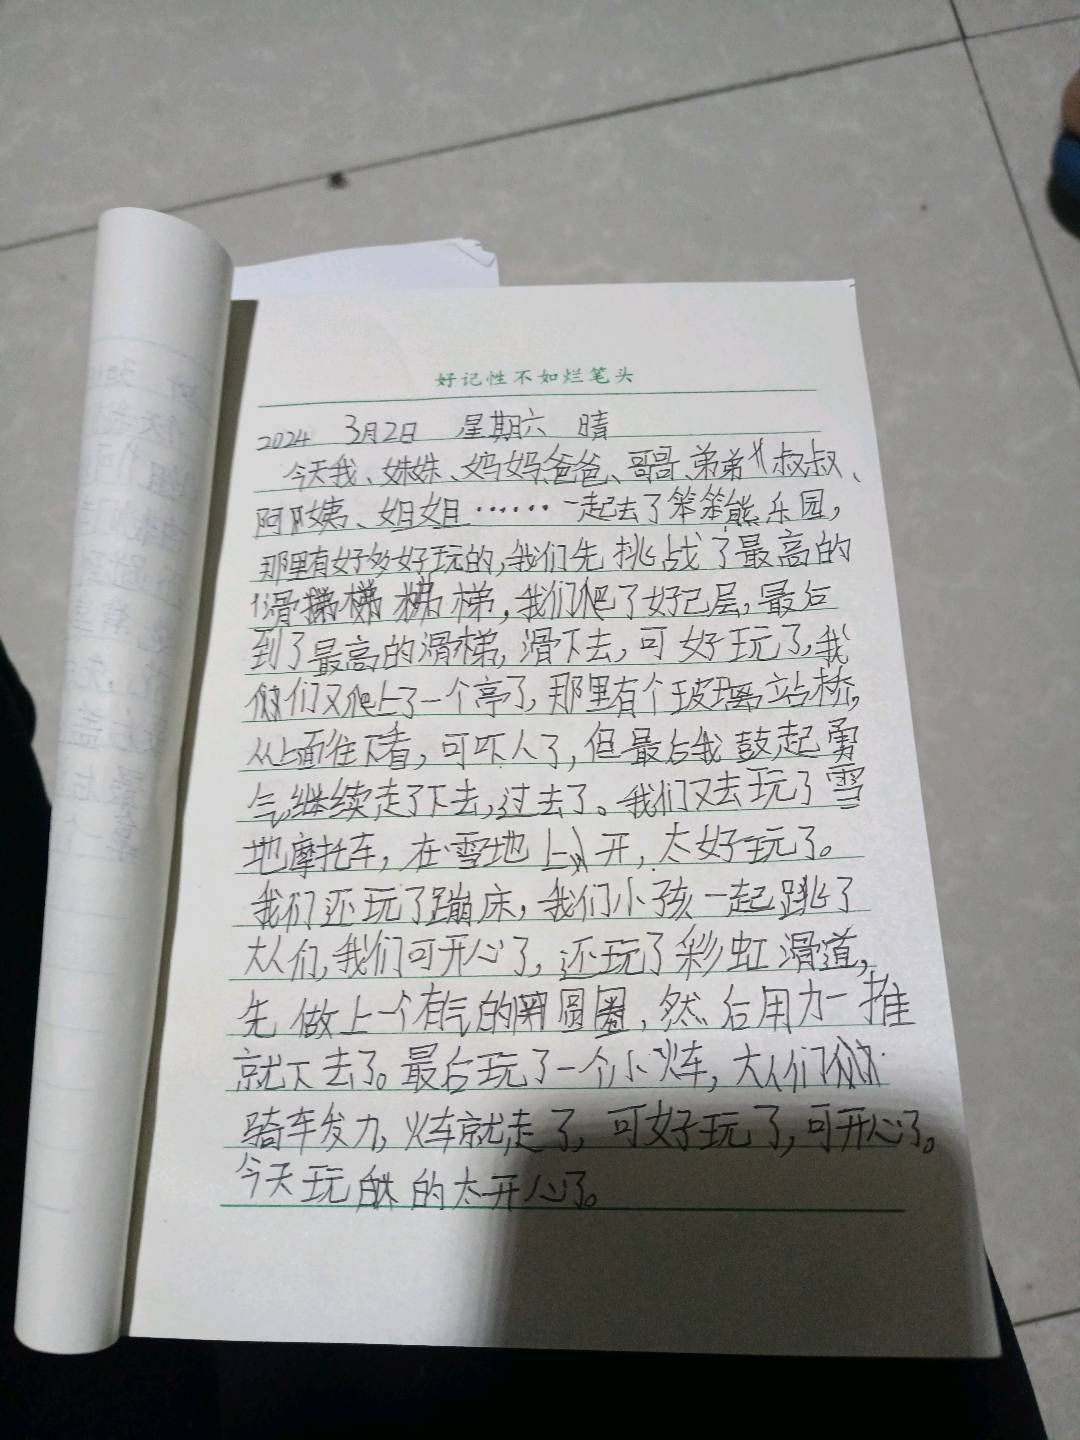 好记性不如烂笔头
2024 3月2日 星期六 晴
今天我、妹妹、妈妈、爸爸、哥哥、弟弟、叔叔、
阿姨、姐姐……一起去了笨笨熊乐园，
那里有好多好玩的，我们先挑战了最高的
滑梯，我们爬了好几层，最后
到了最高的滑梯，滑下去，可好玩了，我
们又爬上了一个亭了，那里有个玻璃站桥，
从上面往下看，可吓人了，但最后我鼓起勇
气继续走了下去，过去了。我们又去玩了雪
地摩托车，在雪地上开，太好玩了。
我们还玩了蹦床，我们小孩一起跳了
大人们，我们可开心了，还玩了彩虹滑道，
先做上一个有气的圆圈，然后用力一推
就下去了。最后玩了一个小火车，大人们
骑车发力，火车就走了，可好玩了，可开心了。
今天玩的太开心了。